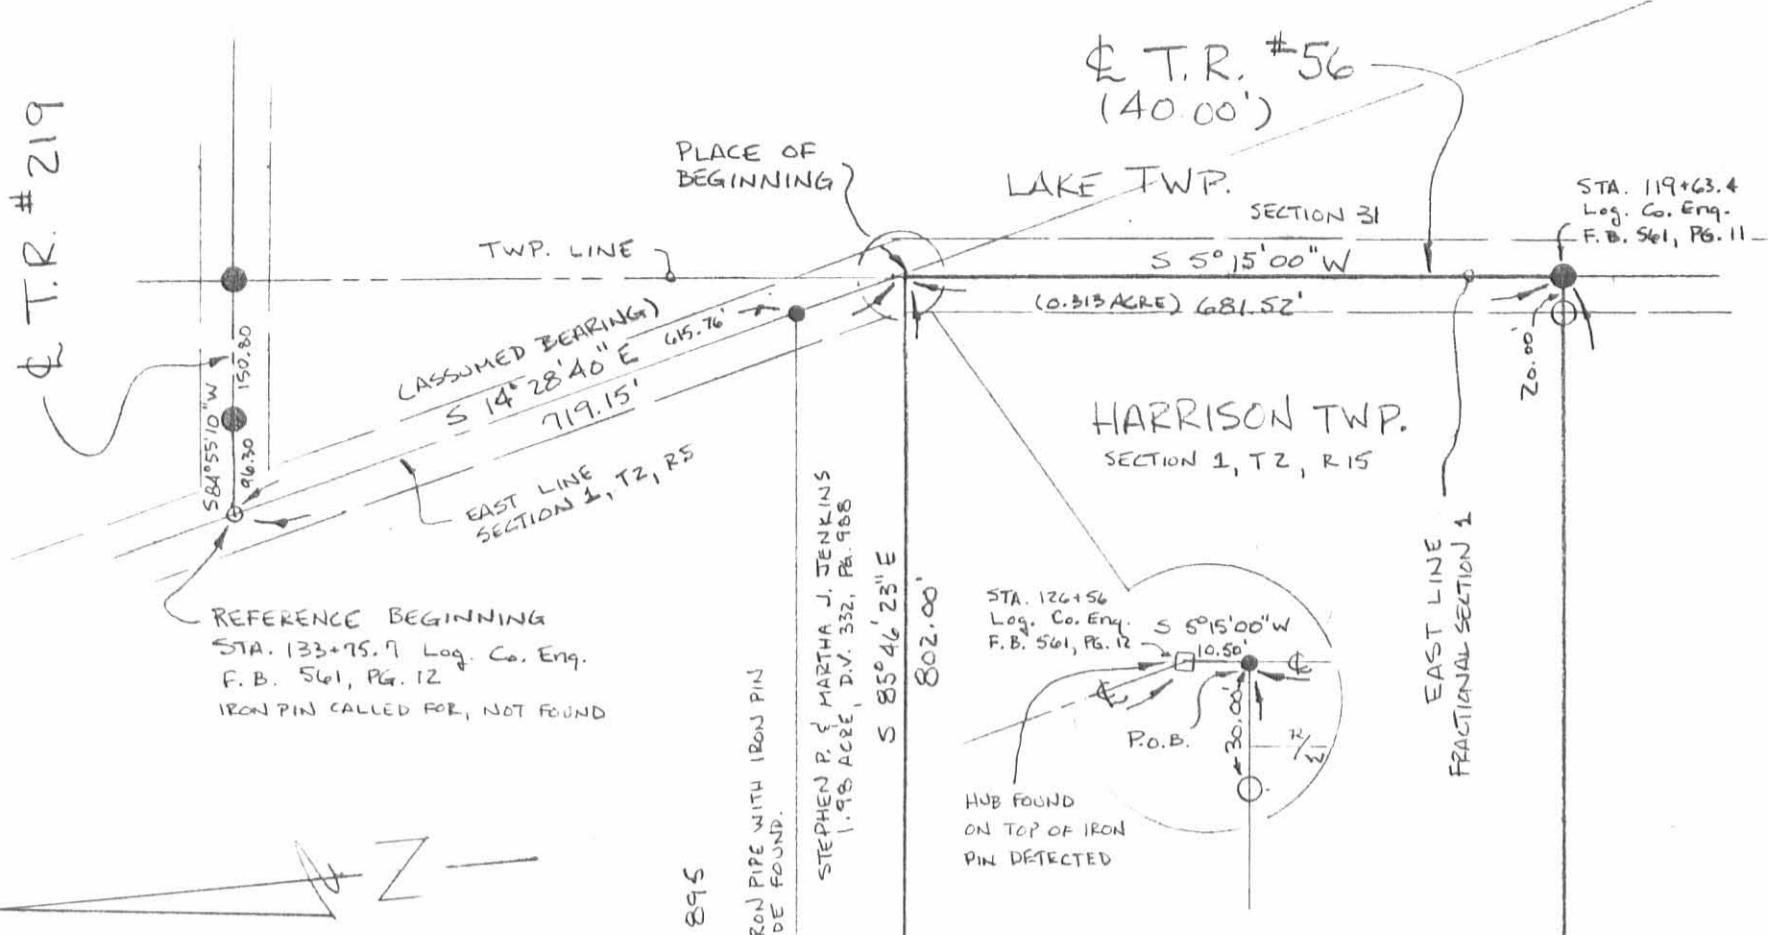 ℄ T.R. #219
℄ T.R. #56
(40.00')
PLACE OF
BEGINNING
LAKE TWP.
SECTION 31
STA. 119+63.4
Log. Co. Eng.
F.B. 561, PG. 11
TWP. LINE
S 5°15'00"W
(0.313 ACRE) 681.52'
(ASSUMED BEARING)
615.76'
S 14°28'40" E
719.15'
S84°55'10"W
150.80
96.30
20.00'
EAST LINE
SECTION 1, T2, R5
HARRISON TWP.
SECTION 1, T2, R15
REFERENCE BEGINNING
STA. 133+75.7 Log. Co. Eng.
F.B. 561, PG. 12
IRON PIN CALLED FOR, NOT FOUND
STEPHEN P. & MARTHA J. JENKINS
1.98 ACRE, D.V. 332, PG. 988
S 85°46'23" E
802.00'
EAST LINE
FRACTIONAL SECTION 1
STA. 126+56
Log. Co. Eng.
F.B. 561, PG. 12
S 5°15'00"W
10.50'
℄
℄
P.O.B.
30.00'
R/W
HUB FOUND
ON TOP OF IRON
PIN DETECTED
RON PIPE WITH IRON PIN
DE FOUND.
895
N